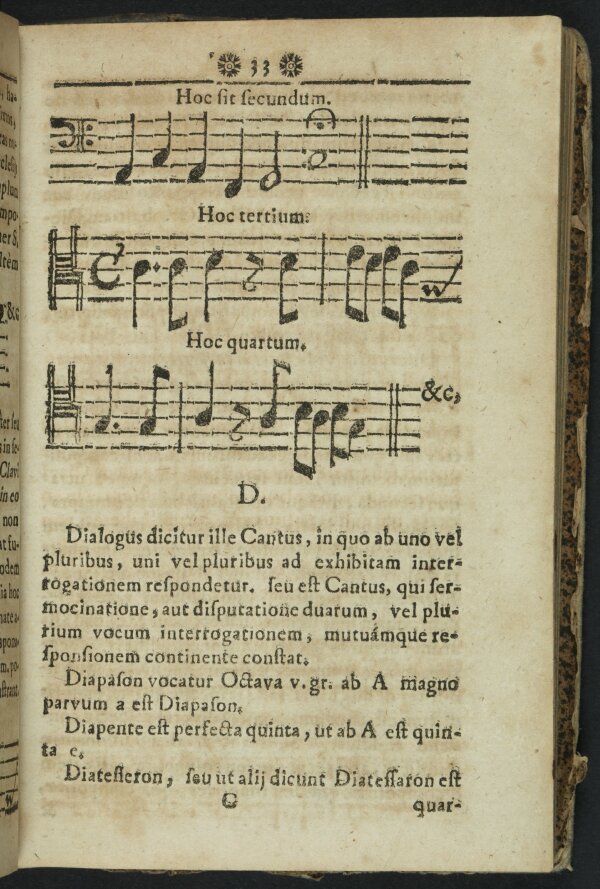 33
Hoc sit secundum.
Hoc tertium:
Hoc quartum.
&c,
D.
Dialogus dicitur ille Cantus, in quo ab uno vel
pluribus, uni vel pluribus ad exhibitam inter-
rogationem respondetur. seu est Cantus, qui ser-
mocinatione, aut disputatione duarum, vel plu-
rium vocum interrogationem, mutuámque re-
sponsionem continente constat.
Diapason vocatur Octava v. gr. ab A magno
parvum a est Diapason.
Diapente est perfecta quinta, ut ab A est quin-
ta e.
Diatesseron, seu ut alij dicunt Diatessaron est
G
quar-